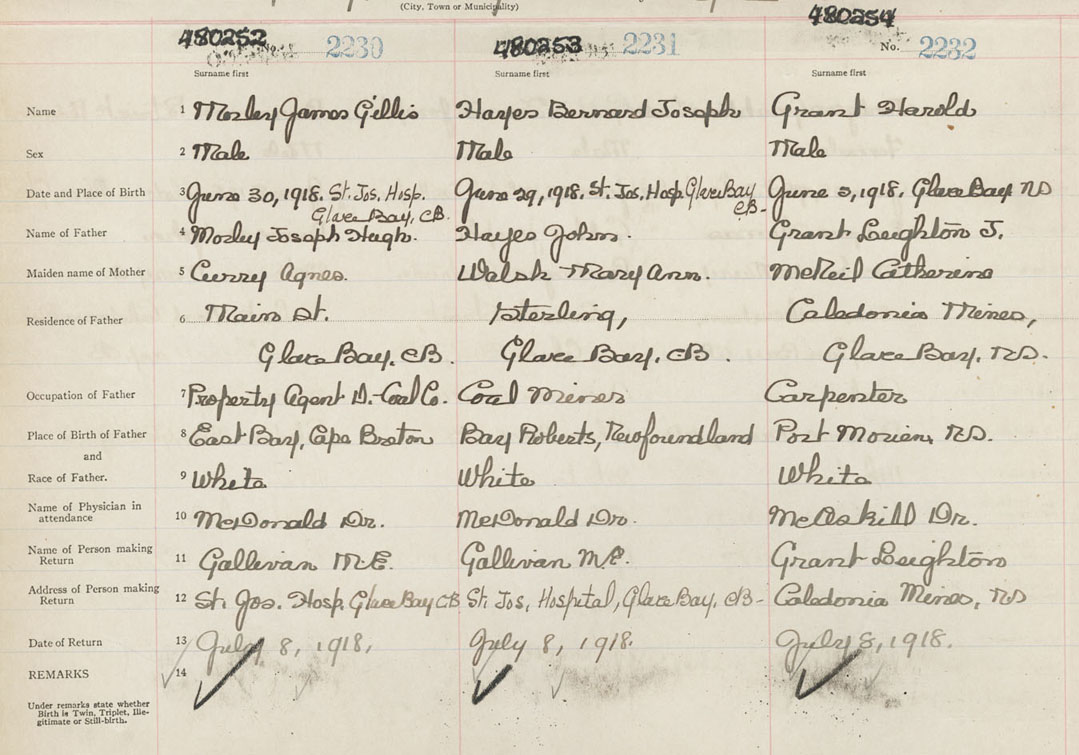 (City, Town or Municipality)
480252 No. 2230 480253 2231 480254 No. 2232
Surname first Surname first Surname first
Name 1 Mozley James Gillis Hayes Bernard Joseph Grant Harold
Sex 2 Male Male Male
Date and Place of Birth 3 June 30, 1918. St. Jos. Hosp. June 29, 1918. St. Jos. Hosp. Glace Bay June 2, 1918. Glace Bay NS
Glace Bay, CB. CB-
Name of Father 4 Mozley Joseph Hugh. Hayes John. Grant Leighton J.
Maiden name of Mother 5 Curry Agnes. Walsh Mary Ann. McNeil Catherine
Residence of Father 6 Main St. Sterling, Caledonia Mines,
Glace Bay, CB. Glace Bay, CB. Glace Bay, NS.
Occupation of Father 7 Property Agent D. Coal Co. Coal Miner Carpenter
Place of Birth of Father 8 East Bay, Cape Breton Bay Roberts, Newfoundland Port Morien, NS.
and
Race of Father. 9 White White White
Name of Physician in
attendance 10 McDonald Dr. McDonald Dr. McAskill Dr.
Name of Person making
Return 11 Gallivan M.E. Gallivan M.E. Grant Leighton
Address of Person making
Return 12 St. Jos. Hosp. Glace Bay CB St. Jos, Hospital, Glace Bay, CB- Caledonia Mines, NS
Date of Return 13 July 8, 1918, July 8, 1918. July 8, 1918.
REMARKS 14
Under remarks state whether
Birth is Twin, Triplet, Ille-
gitimate or Still-birth.